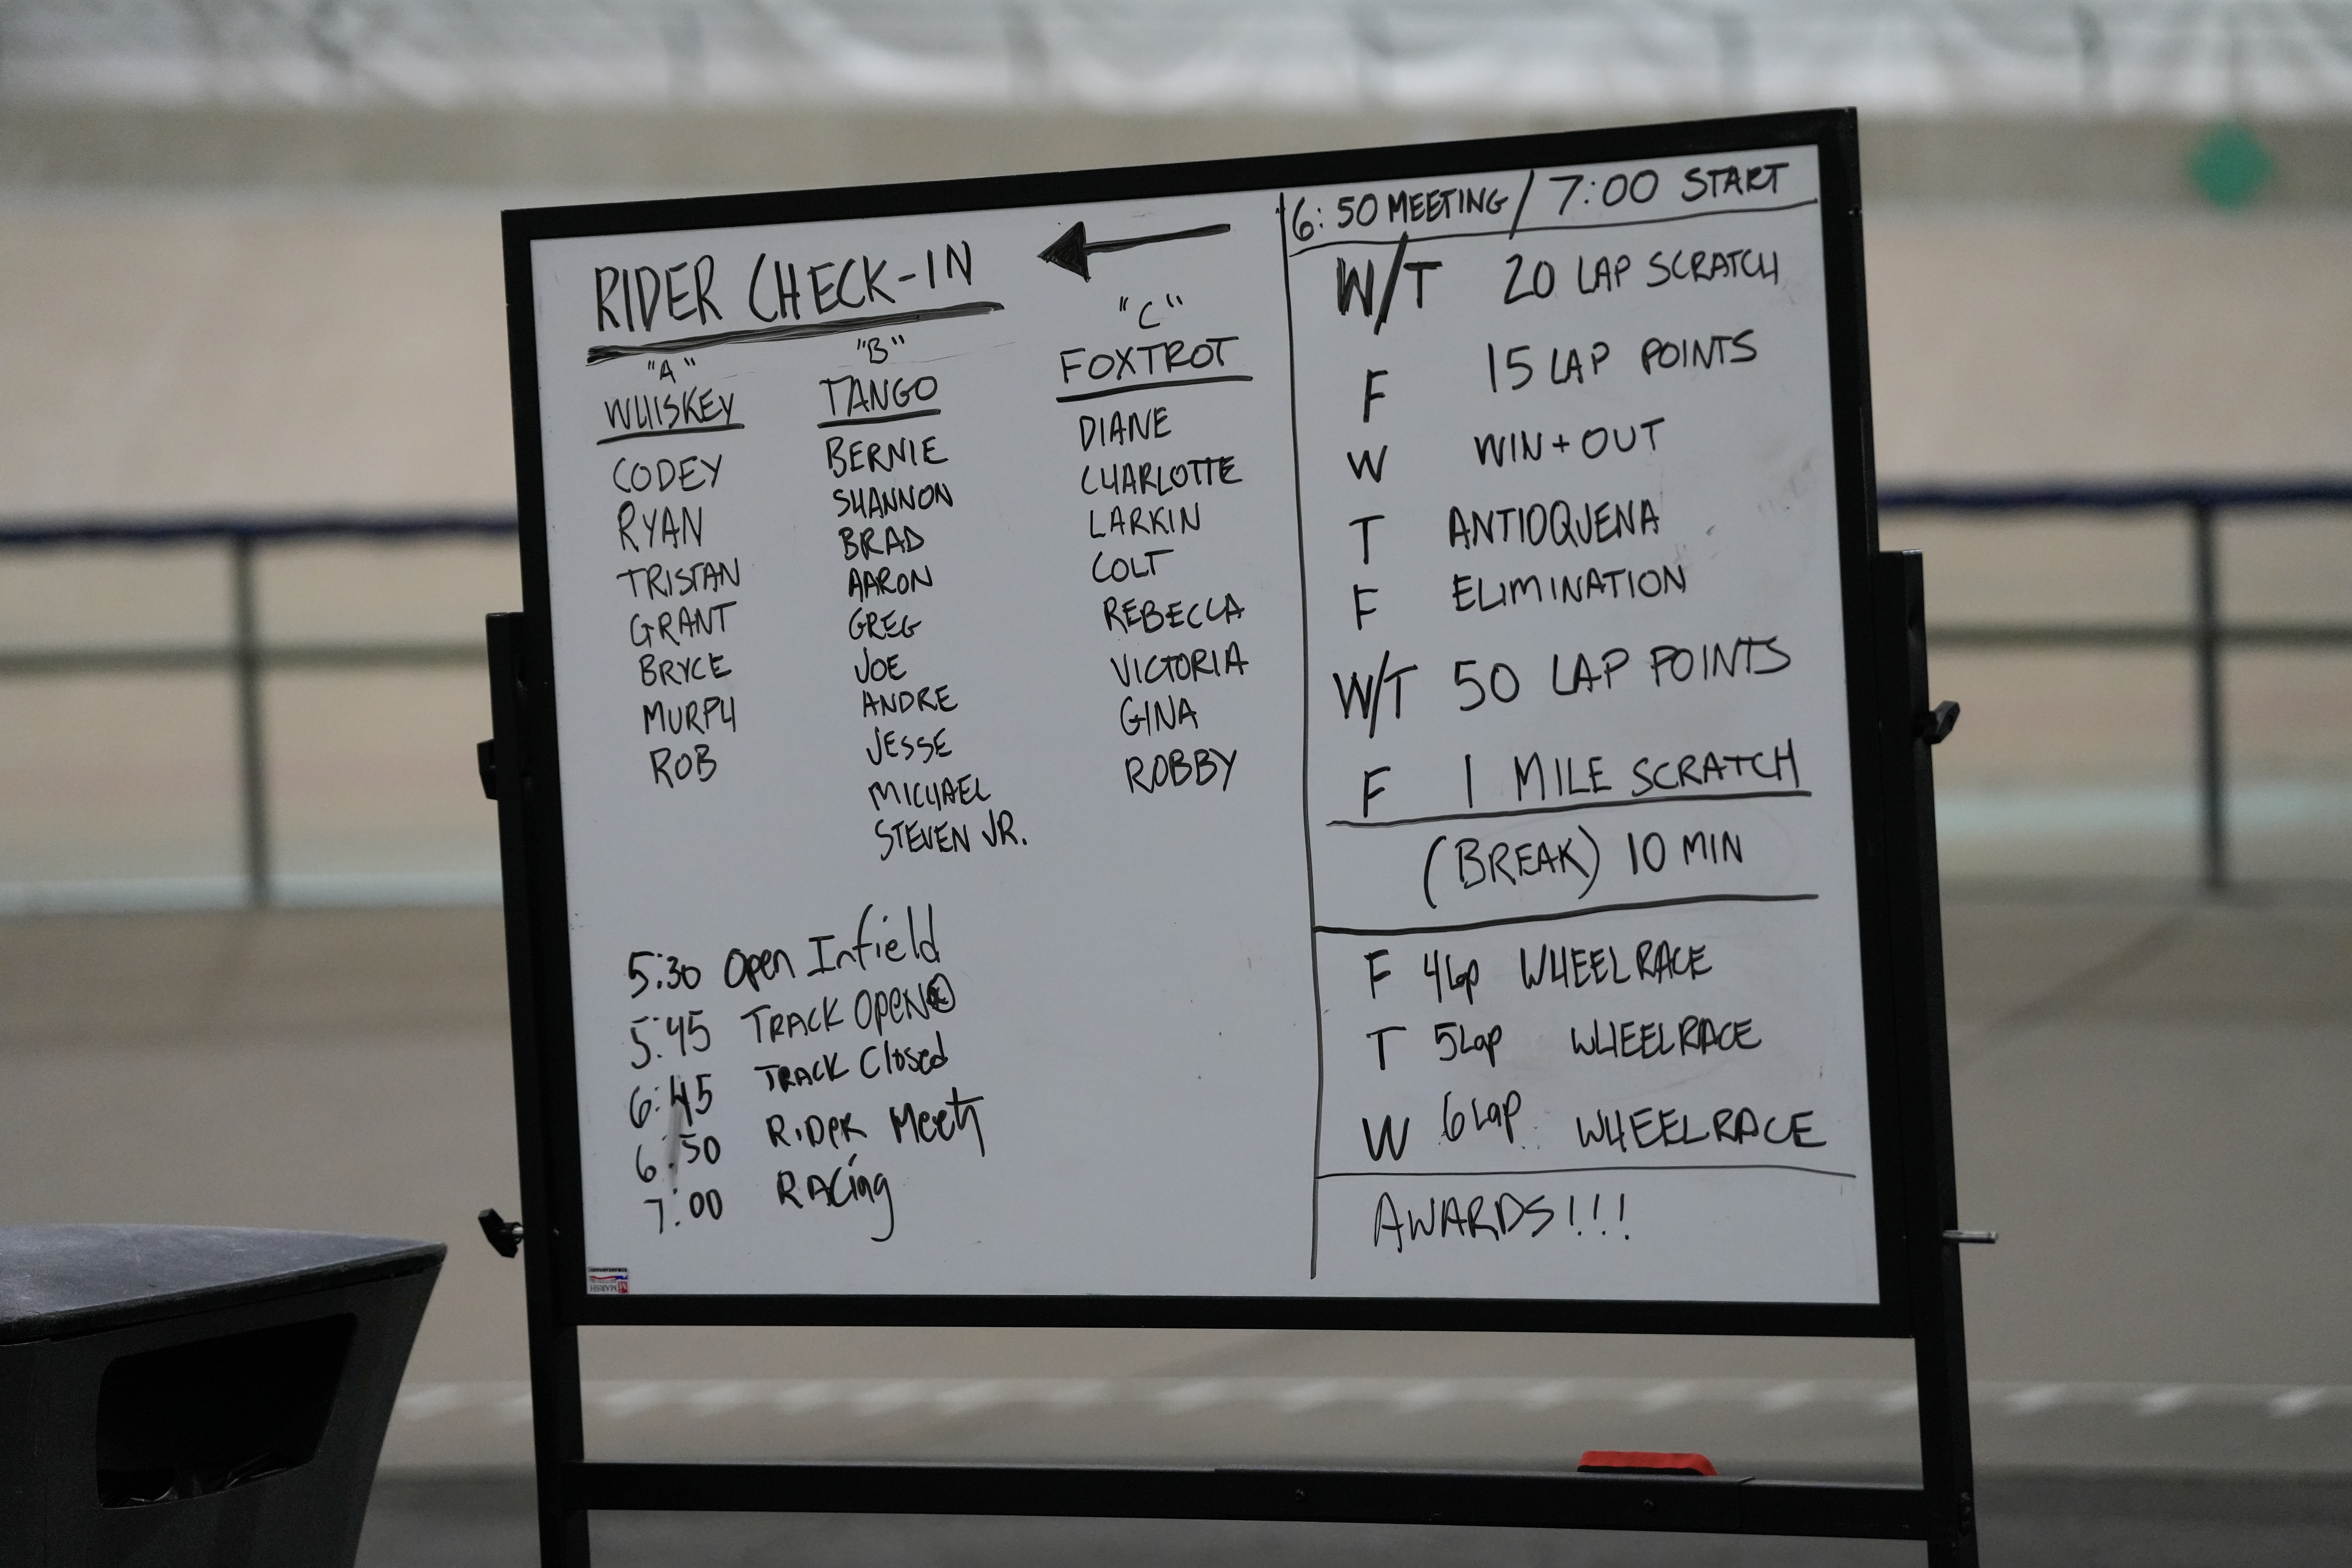 RIDER CHECK-IN
"A"
WHISKEY
CODEY
RYAN
TRISTAN
GRANT
BRYCE
MURPH
ROB
"B"
TANGO
BERNIE
SHANNON
BRAD
AARON
GREG
JOE
ANDRE
JESSE
MICHAEL
STEVEN JR.
"C"
FOXTROT
DIANE
CHARLOTTE
LARKIN
COLT
REBECCA
VICTORIA
GINA
ROBBY
5:30 Open Infield
5:45 TRACK OPEN
6:45 TRACK Closed
6:50 RiDeR Meetg
7:00 RACing
6:50 MEETING / 7:00 START
W/T 20 LAP SCRATCH
F 15 LAP POINTS
W WIN + OUT
T ANTIOQUENA
F ELIMINATION
W/T 50 LAP POINTS
F 1 MILE SCRATCH
(BREAK) 10 MIN
F 4 Lap WHEELRACE
T 5 Lap WHEELRACE
W 6 Lap WHEELRACE
AWARDS!!!
MARSH